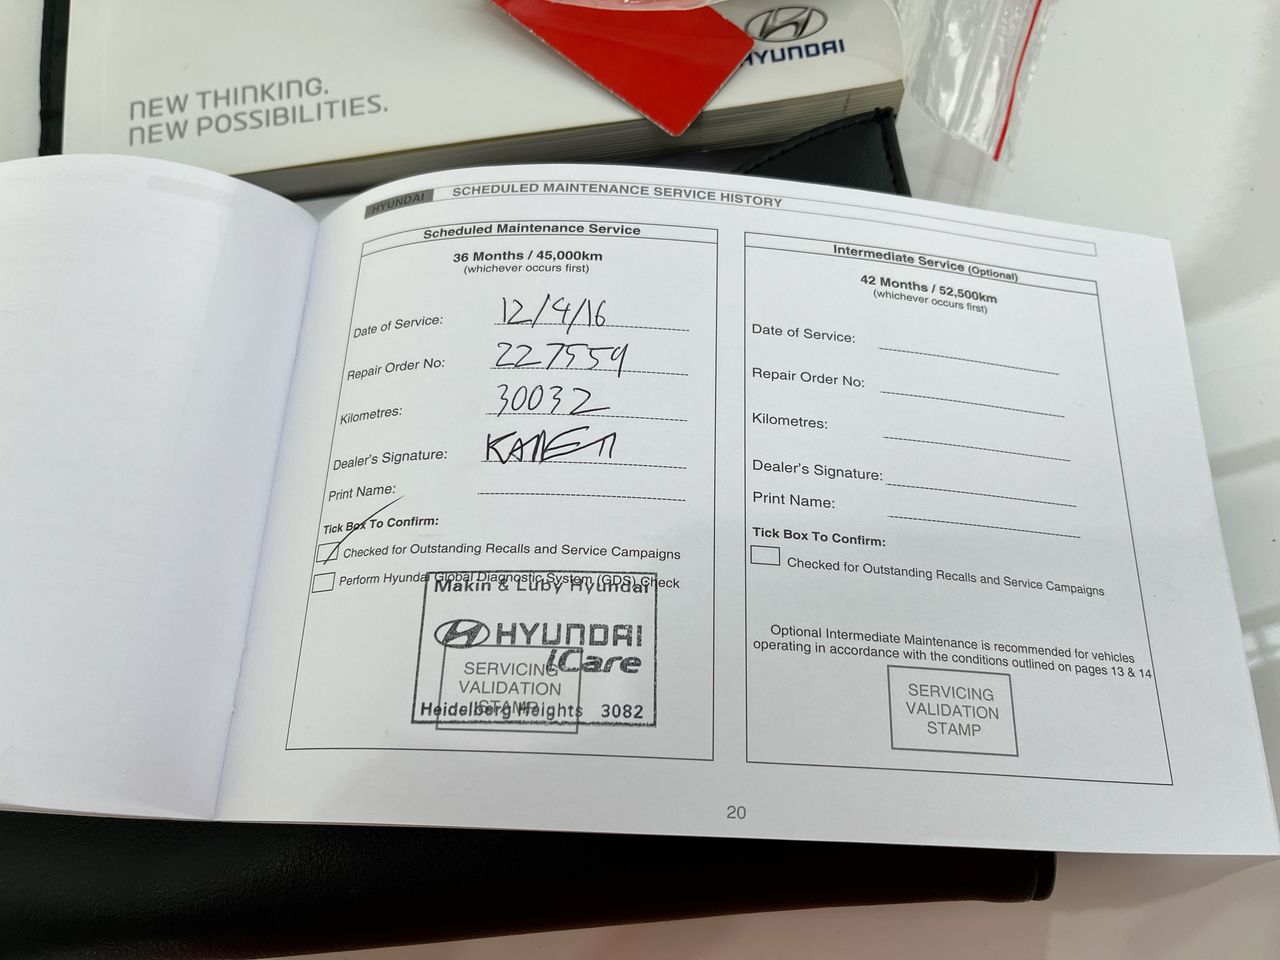 NEW THINKING.
NEW POSSIBILITIES.
HYUNDAI
HYUNDAI SCHEDULED MAINTENANCE SERVICE HISTORY
Scheduled Maintenance Service
36 Months / 45,000km
(whichever occurs first)
Date of Service: 12/4/16
Repair Order No: 227559
Kilometres: 30032
Dealer's Signature:
Print Name:
Tick Box To Confirm:
Checked for Outstanding Recalls and Service Campaigns
Perform Hyundai Global Diagnostic System (GDS) Check
Makin & Luby Hyundai
HYUNDAI
iCare
SERVICING
VALIDATION
STAMP
Heidelberg Heights 3082
Intermediate Service (Optional)
42 Months / 52,500km
(whichever occurs first)
Date of Service:
Repair Order No:
Kilometres:
Dealer's Signature:
Print Name:
Tick Box To Confirm:
Checked for Outstanding Recalls and Service Campaigns
Optional Intermediate Maintenance is recommended for vehicles
operating in accordance with the conditions outlined on pages 13 & 14
SERVICING
VALIDATION
STAMP
20